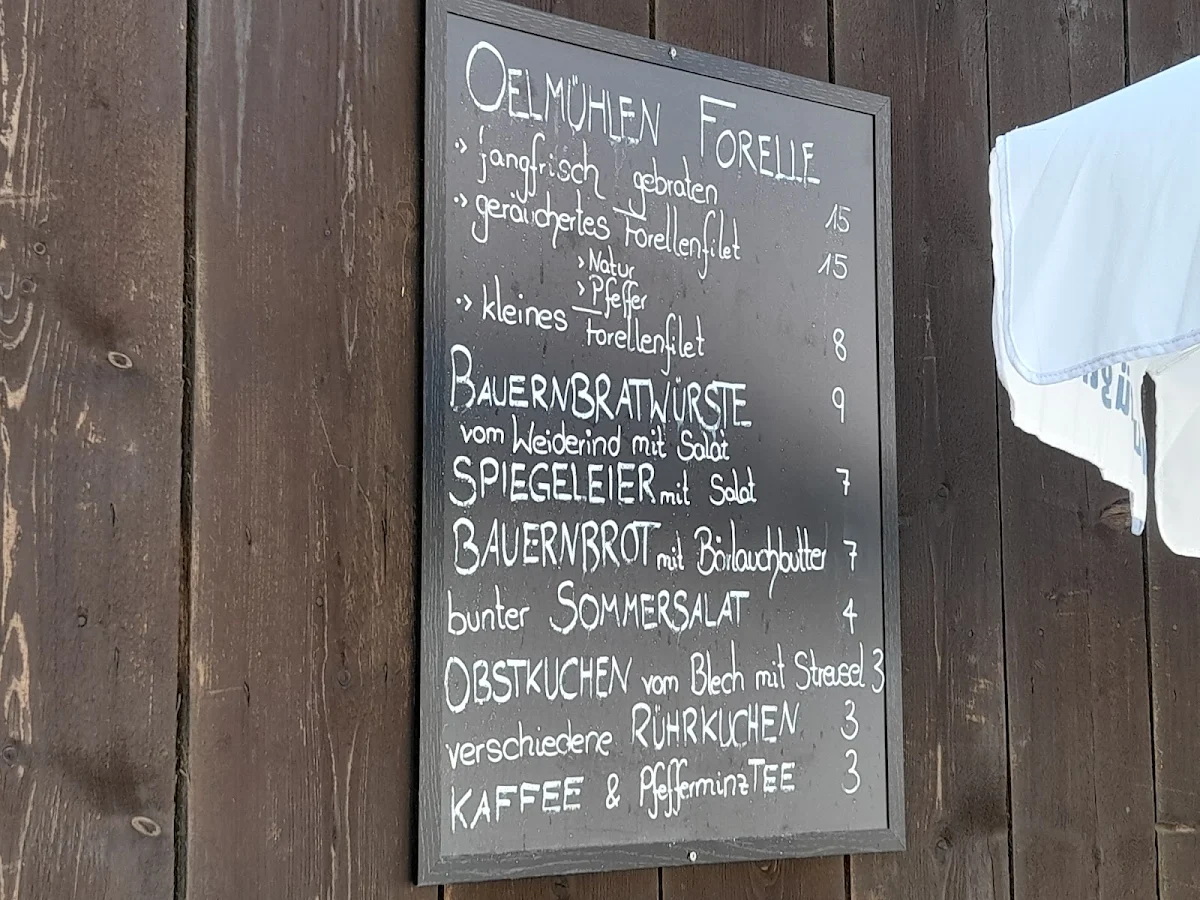 OELMÜHLEN FORELLE
·> fangfrisch gebraten 15
·> geräuchertes Forellenfilet 15
> Natur
> Pfeffer
·> kleines Forellenfilet 8
BAUERNBRATWÜRSTE 9
vom Weiderind mit Salat
SPIEGELEIER mit Salat 7
BAUERNBROT mit Bärlauchbutter 7
bunter SOMMERSALAT 4
OBSTKUCHEN vom Blech mit Streusel 3
verschiedene RÜHRKUCHEN 3
KAFFEE & PfefferminzTEE 3